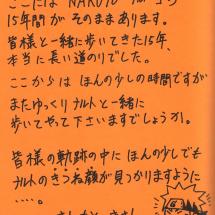 ここには NARUTO
15年間が そのままあります。
皆様と一緒に歩いてきた15年、
本当に長い道のりでした。
ここからは ほんの少しの時間ですが
またゆっくり ナルトと一緒に
歩いてやって下さいますでしょうか。
皆様の軌跡の中に ほんの少しでも
ナルトのきつね顔が見つかりますように
……。